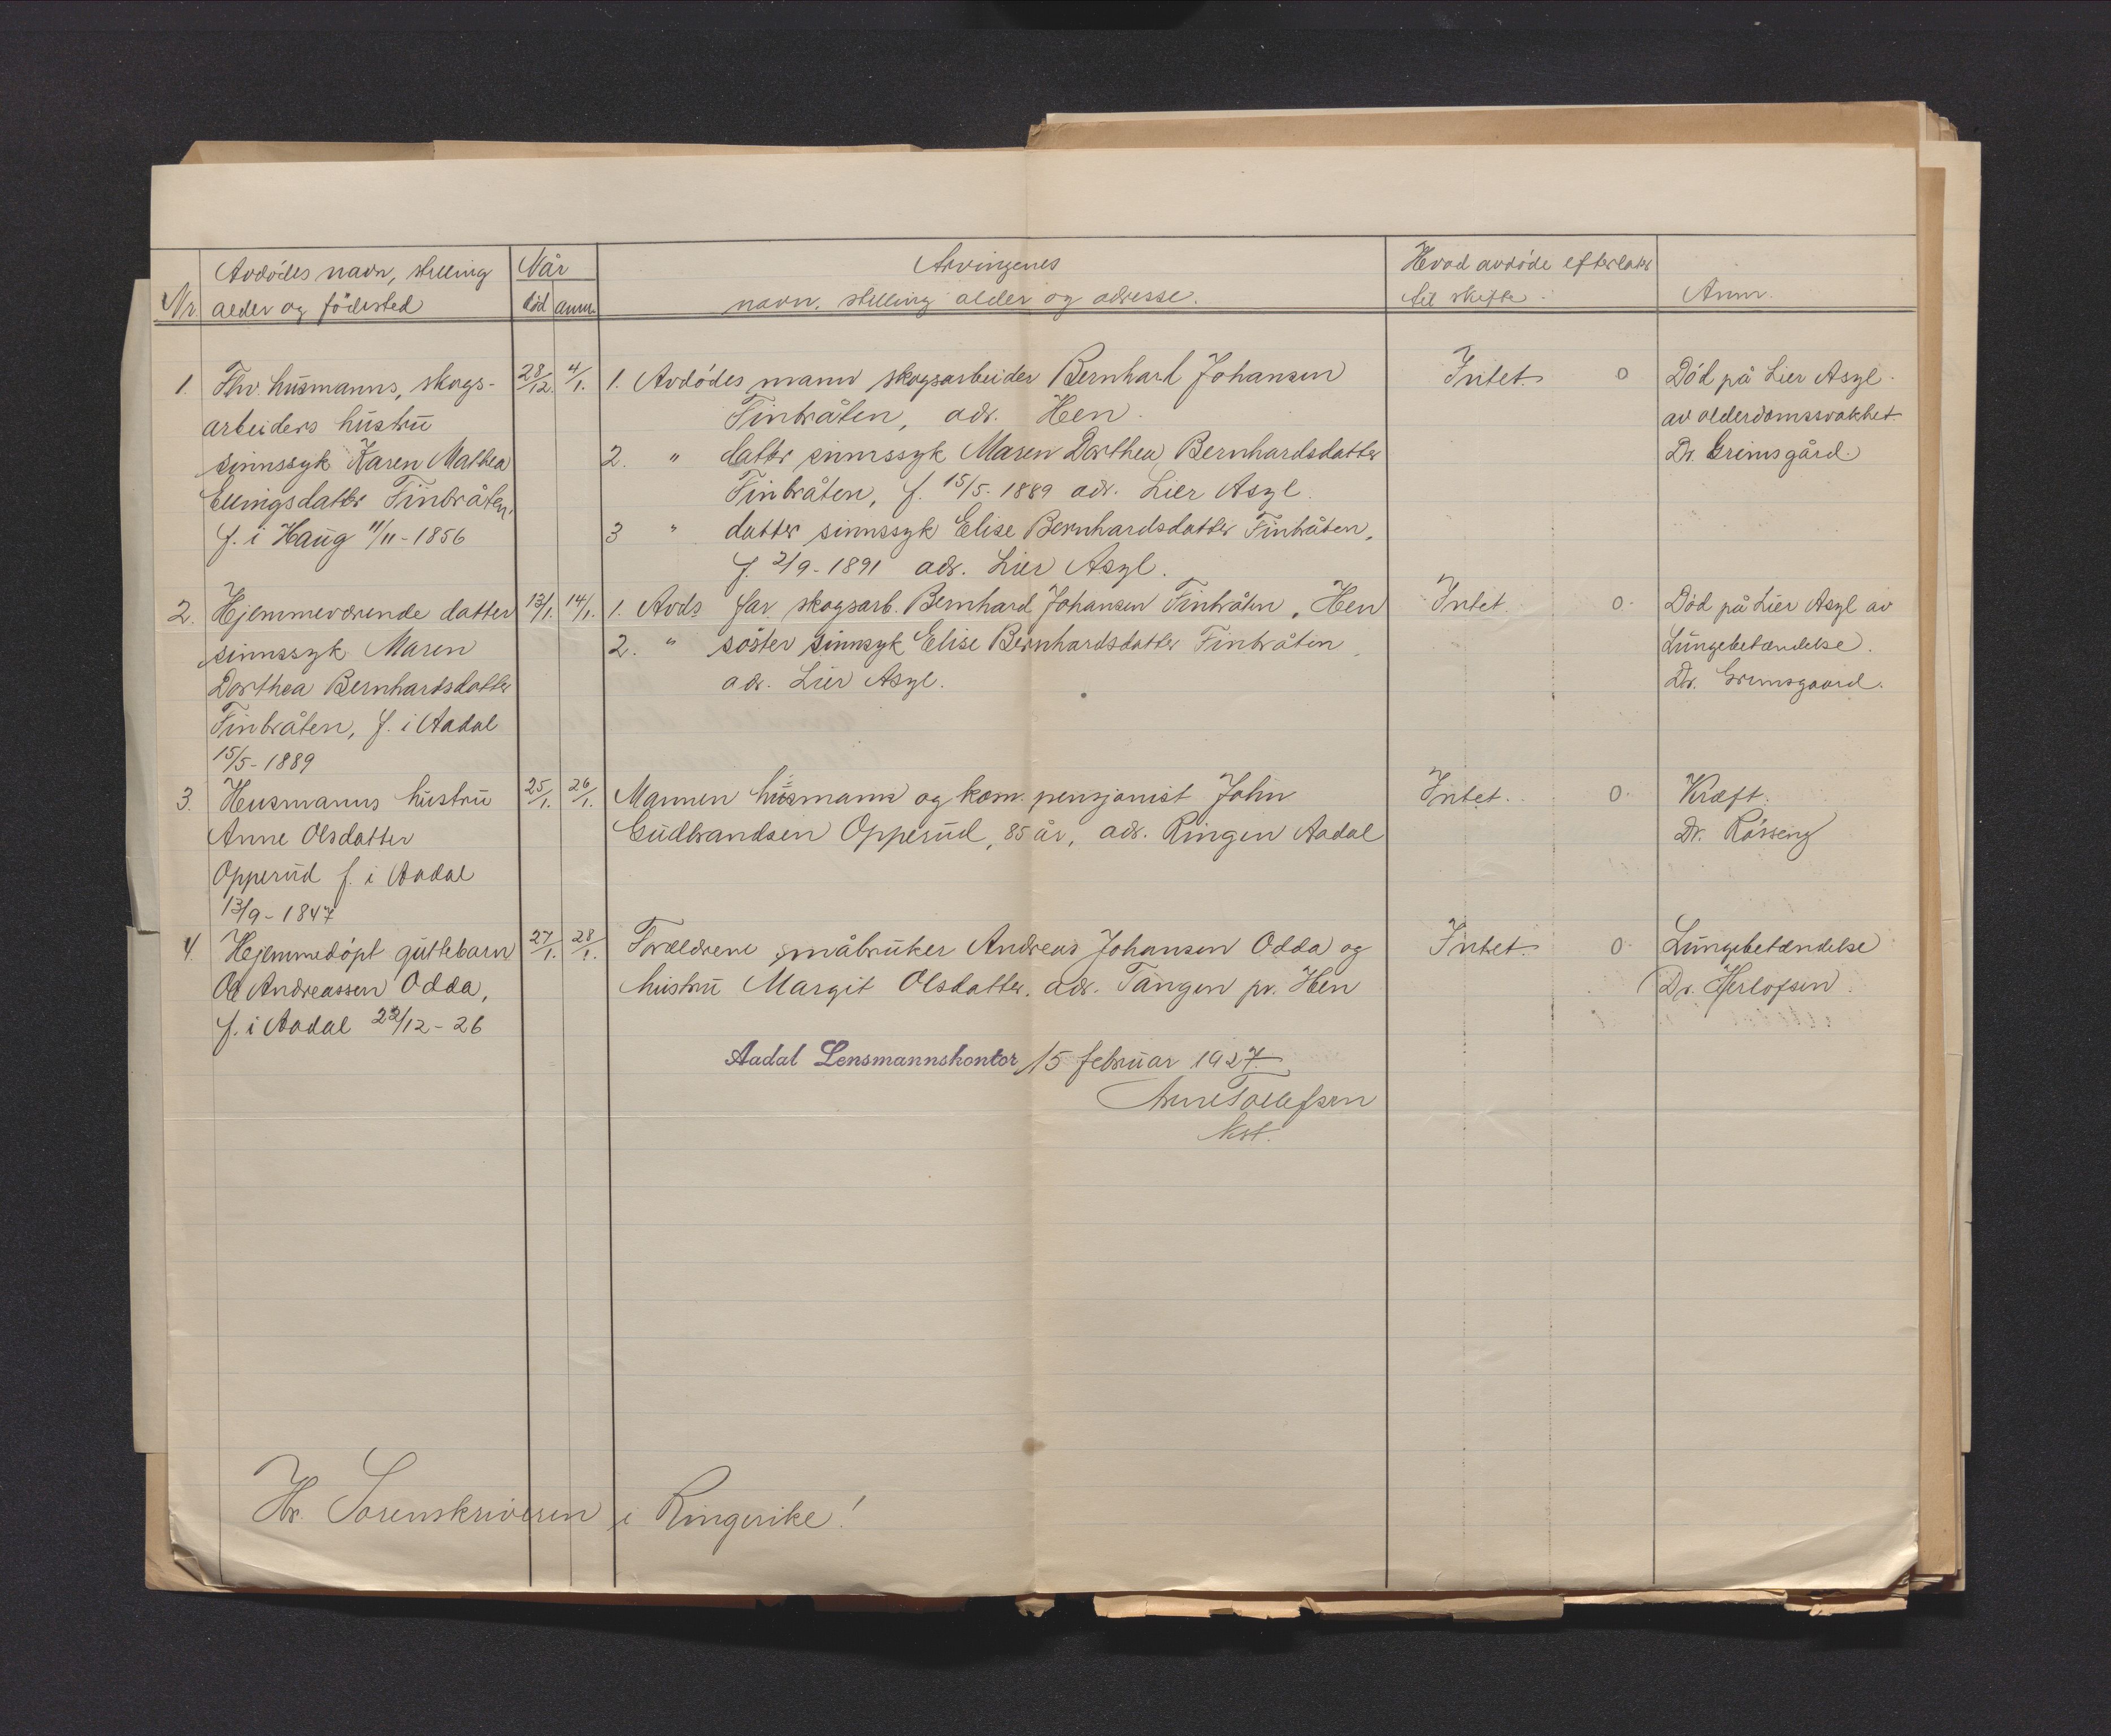 Avdödes navn, stilling
Når
Arvingenes
Hvad avdöde efterlater
Nr.
alder og födested
död
anm.
navn, stilling alder og adresse.
til skifte.
Anm.
1.
Fhv. husmanns, skogs-
28/12.
4/1.
1. Avdödes mann skogsarbeider Bernhard Johansen
Intet.
0
Död på Lier Asyl.
arbeiders hustru
Finbråten, adr. Hen.
av alderdomssvakhet
sinnssyk Karen Mathea
2. " datter sinnssyk Maren Dorthea Bernhardsdatter
Dr. Grimsgård.
Ellingsdatter Finbråten,
Finbråten, f. 15/5-1889 adr. Lier Asyl.
f. i Haug 11/11-1856
3 " datter sinnssyk Elise Bernhardsdatter Finbråten,
f. 2/9-1891 adr. Lier Asyl.
2.
Hjemmeværende datter
13/1.
14/1.
1. Avds far skogsarb. Bernhard Johansen Finbråten, Hen
Intet.
0.
Död på Lier Asyl av
sinnssyk Maren
2. " söster sinnsyk Elise Bernhardsdatter Finbråten,
Lungebetændelse.
Dorthea Bernhardsdatter
adr. Lier Asyl.
Dr. Grimsgaard.
Finbråten, f. i Aadal
15/5-1889
3.
Husmanns hustru
25/1.
26/1.
Mannen husmann og kom. pensjonist John
Intet.
0.
Kræft.
Anne Olsdatter
Gudbrandsen Opperud, 85 år, adr. Ringen Aadal
Dr. Rössing
Opperud f. i Aadal
13/9-1847
4.
Hjemmedöpt guttebarn
27/1.
28/1.
Forældrene småbruker Andreas Johansen Odda og
Intet.
0.
Lungebetændelse
Ole Andreassen Odda,
hustru Margit Olsdatter, adr. Tangen pr. Hen
Dr. Herlofsen.
f. i Aadal 22/12-26
Aadal Lensmannskontor, 15 februar 1927.
Arne Tollefsen
Hr. Sorenskriveren i Ringerike!